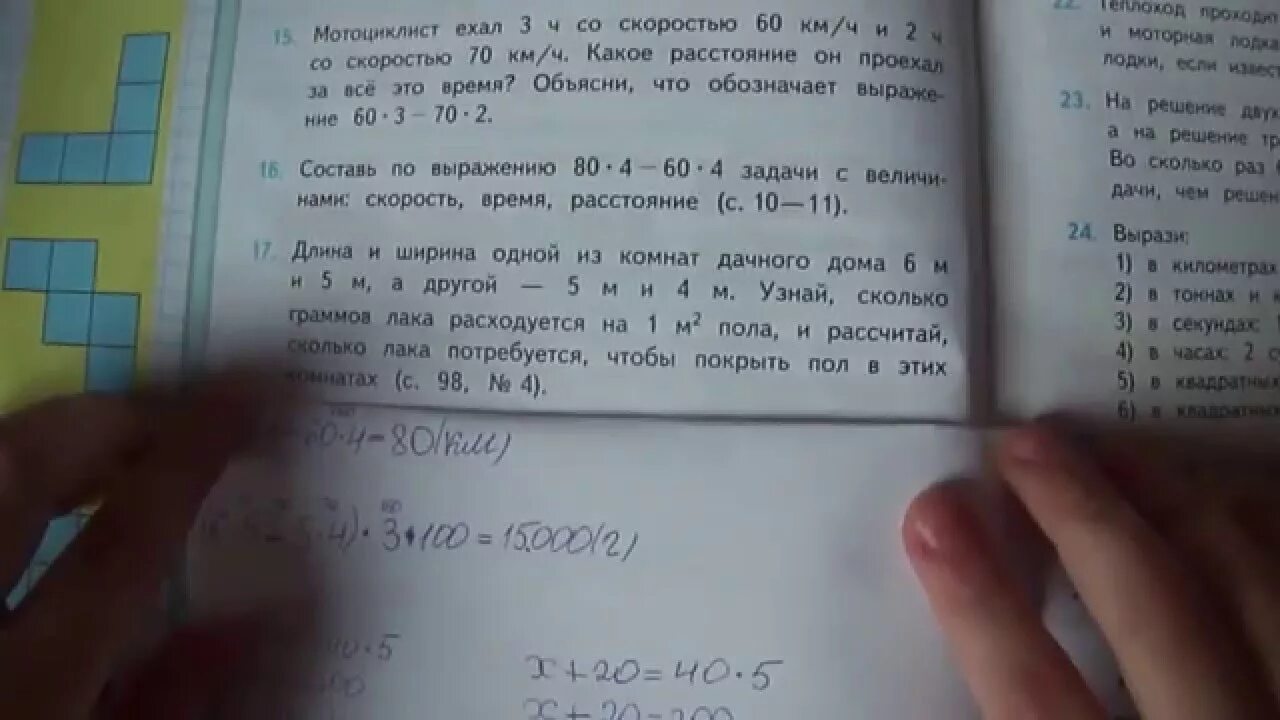 15. Мотоциклист ехал 3 ч со скоростью 60 км/ч и 2 ч
со скоростью 70 км/ч. Какое расстояние он проехал
за всё это время? Объясни, что обозначает выраже-
ние 60 · 3 – 70 · 2.
16. Составь по выражению 80 · 4 – 60 · 4 задачи с величи-
нами: скорость, время, расстояние (с. 10—11).
17. Длина и ширина одной из комнат дачного дома 6 м
и 5 м, а другой — 5 м и 4 м. Узнай, сколько
граммов лака расходуется на 1 м² пола, и рассчитай,
сколько лака потребуется, чтобы покрыть пол в этих
комнатах (с. 98, № 4).
60·4=80(км)
·4)·3·100=15.000(г)
40·5
x+20=40·5
x+20=200
22. Теплоход
и моторная лодка
лодки, если
23. На решение двух
а на решение
Во сколько раз
дачи, чем
24. Вырази:
1) в километрах
2) в тоннах и
3) в секундах:
4) в часах: 2
5) в квадратных
6) в квадратных